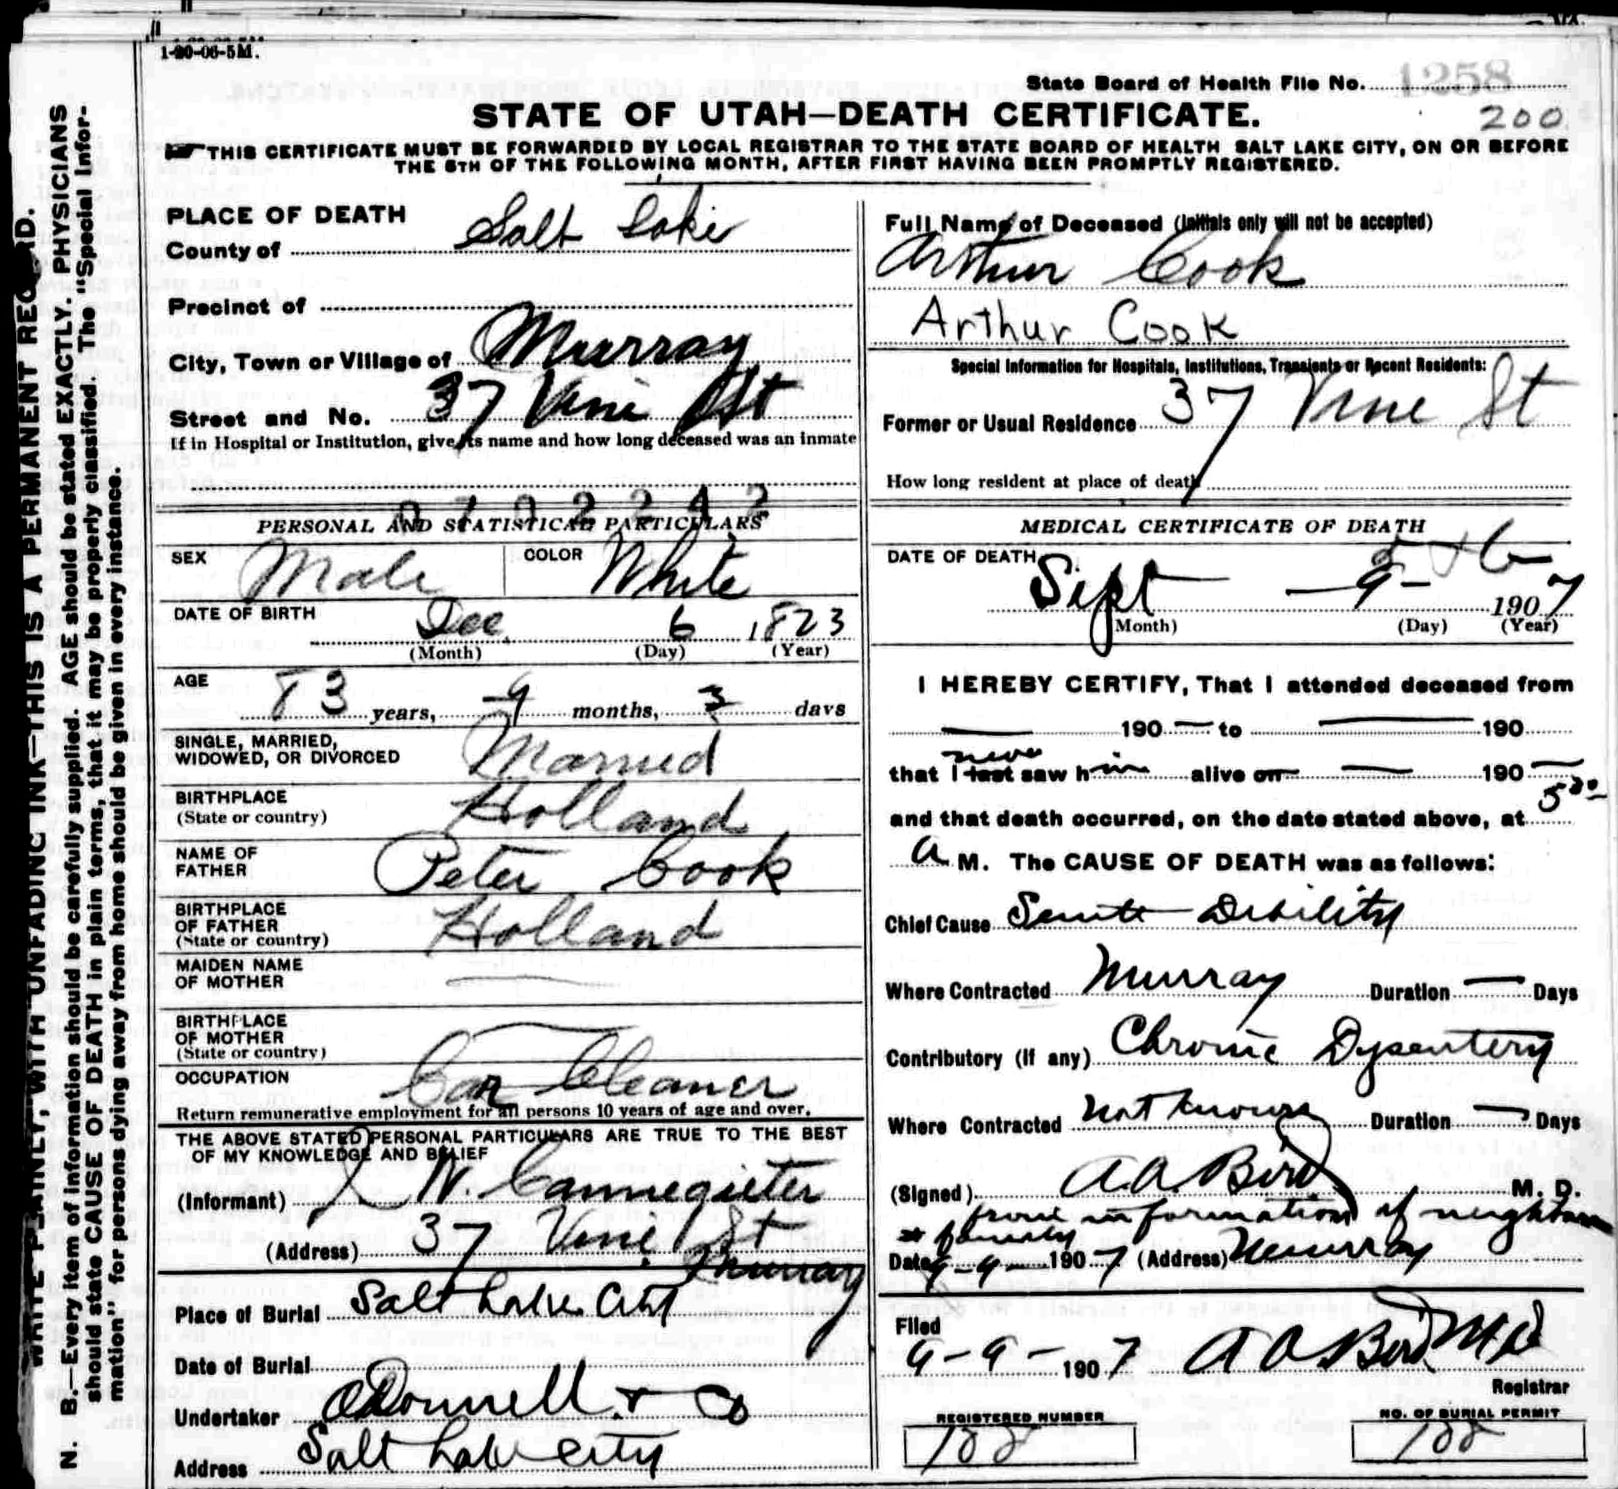 1-20-06-5M.
State Board of Health File No. 1258
STATE OF UTAH—DEATH CERTIFICATE.
200
THIS CERTIFICATE MUST BE FORWARDED BY LOCAL REGISTRAR TO THE STATE BOARD OF HEALTH SALT LAKE CITY, ON OR BEFORE
THE 5TH OF THE FOLLOWING MONTH, AFTER FIRST HAVING BEEN PROMPTLY REGISTERED.
WRITE PLAINLY, WITH UNFADING INK—THIS IS A PERMANENT RECORD.
N. B.—Every item of information should be carefully supplied. AGE should be stated EXACTLY. PHYSICIANS
should state CAUSE OF DEATH in plain terms, that it may be properly classified. The "Special Infor-
mation" for persons dying away from home should be given in every instance.
PLACE OF DEATH
County of Salt Lake
Precinct of
City, Town or Village of Murray
Street and No. 37 Vine St
If in Hospital or Institution, give its name and how long deceased was an inmate
0702242
PERSONAL AND STATISTICAL PARTICULARS
SEX Male COLOR White
DATE OF BIRTH Dec 6 1823
(Month) (Day) (Year)
AGE 83 years, 9 months, 3 days
SINGLE, MARRIED,
WIDOWED, OR DIVORCED Married
BIRTHPLACE
(State or country) Holland
NAME OF
FATHER Peter Cook
BIRTHPLACE
OF FATHER
(State or country) Holland
MAIDEN NAME
OF MOTHER —
BIRTHPLACE
OF MOTHER
(State or country) —
OCCUPATION Car Cleaner
Return remunerative employment for all persons 10 years of age and over.
THE ABOVE STATED PERSONAL PARTICULARS ARE TRUE TO THE BEST
OF MY KNOWLEDGE AND BELIEF
(Informant) W. Cannegieter
(Address) 37 Vine St
Murray
Place of Burial Salt Lake City
Date of Burial
Undertaker O'Donnell & Co
Address Salt Lake City
Full Name of Deceased (Initials only will not be accepted)
Arthur Cook
Arthur Cook
Special Information for Hospitals, Institutions, Transients or Recent Residents:
Former or Usual Residence 37 Vine St
How long resident at place of death
MEDICAL CERTIFICATE OF DEATH
DATE OF DEATH
Sept — 9 — 1907
(Month) (Day) (Year)
I HEREBY CERTIFY, That I attended deceased from
— 190 — to — 190
never
that I last saw him alive on — 190 —
and that death occurred, on the date stated above, at 5 30
A M. The CAUSE OF DEATH was as follows:
Chief Cause Senile Debility
Where Contracted Murray Duration — Days
Contributory (if any) Chronic Dysentery
Where Contracted not known Duration — Days
(Signed) A A Bird M. D.
from information of neighbors
& family
Date 9-9- 1907 (Address) Murray
Filed
9-9- 1907 A A Bird MD
Registrar
REGISTERED NUMBER
188
NO. OF BURIAL PERMIT
188